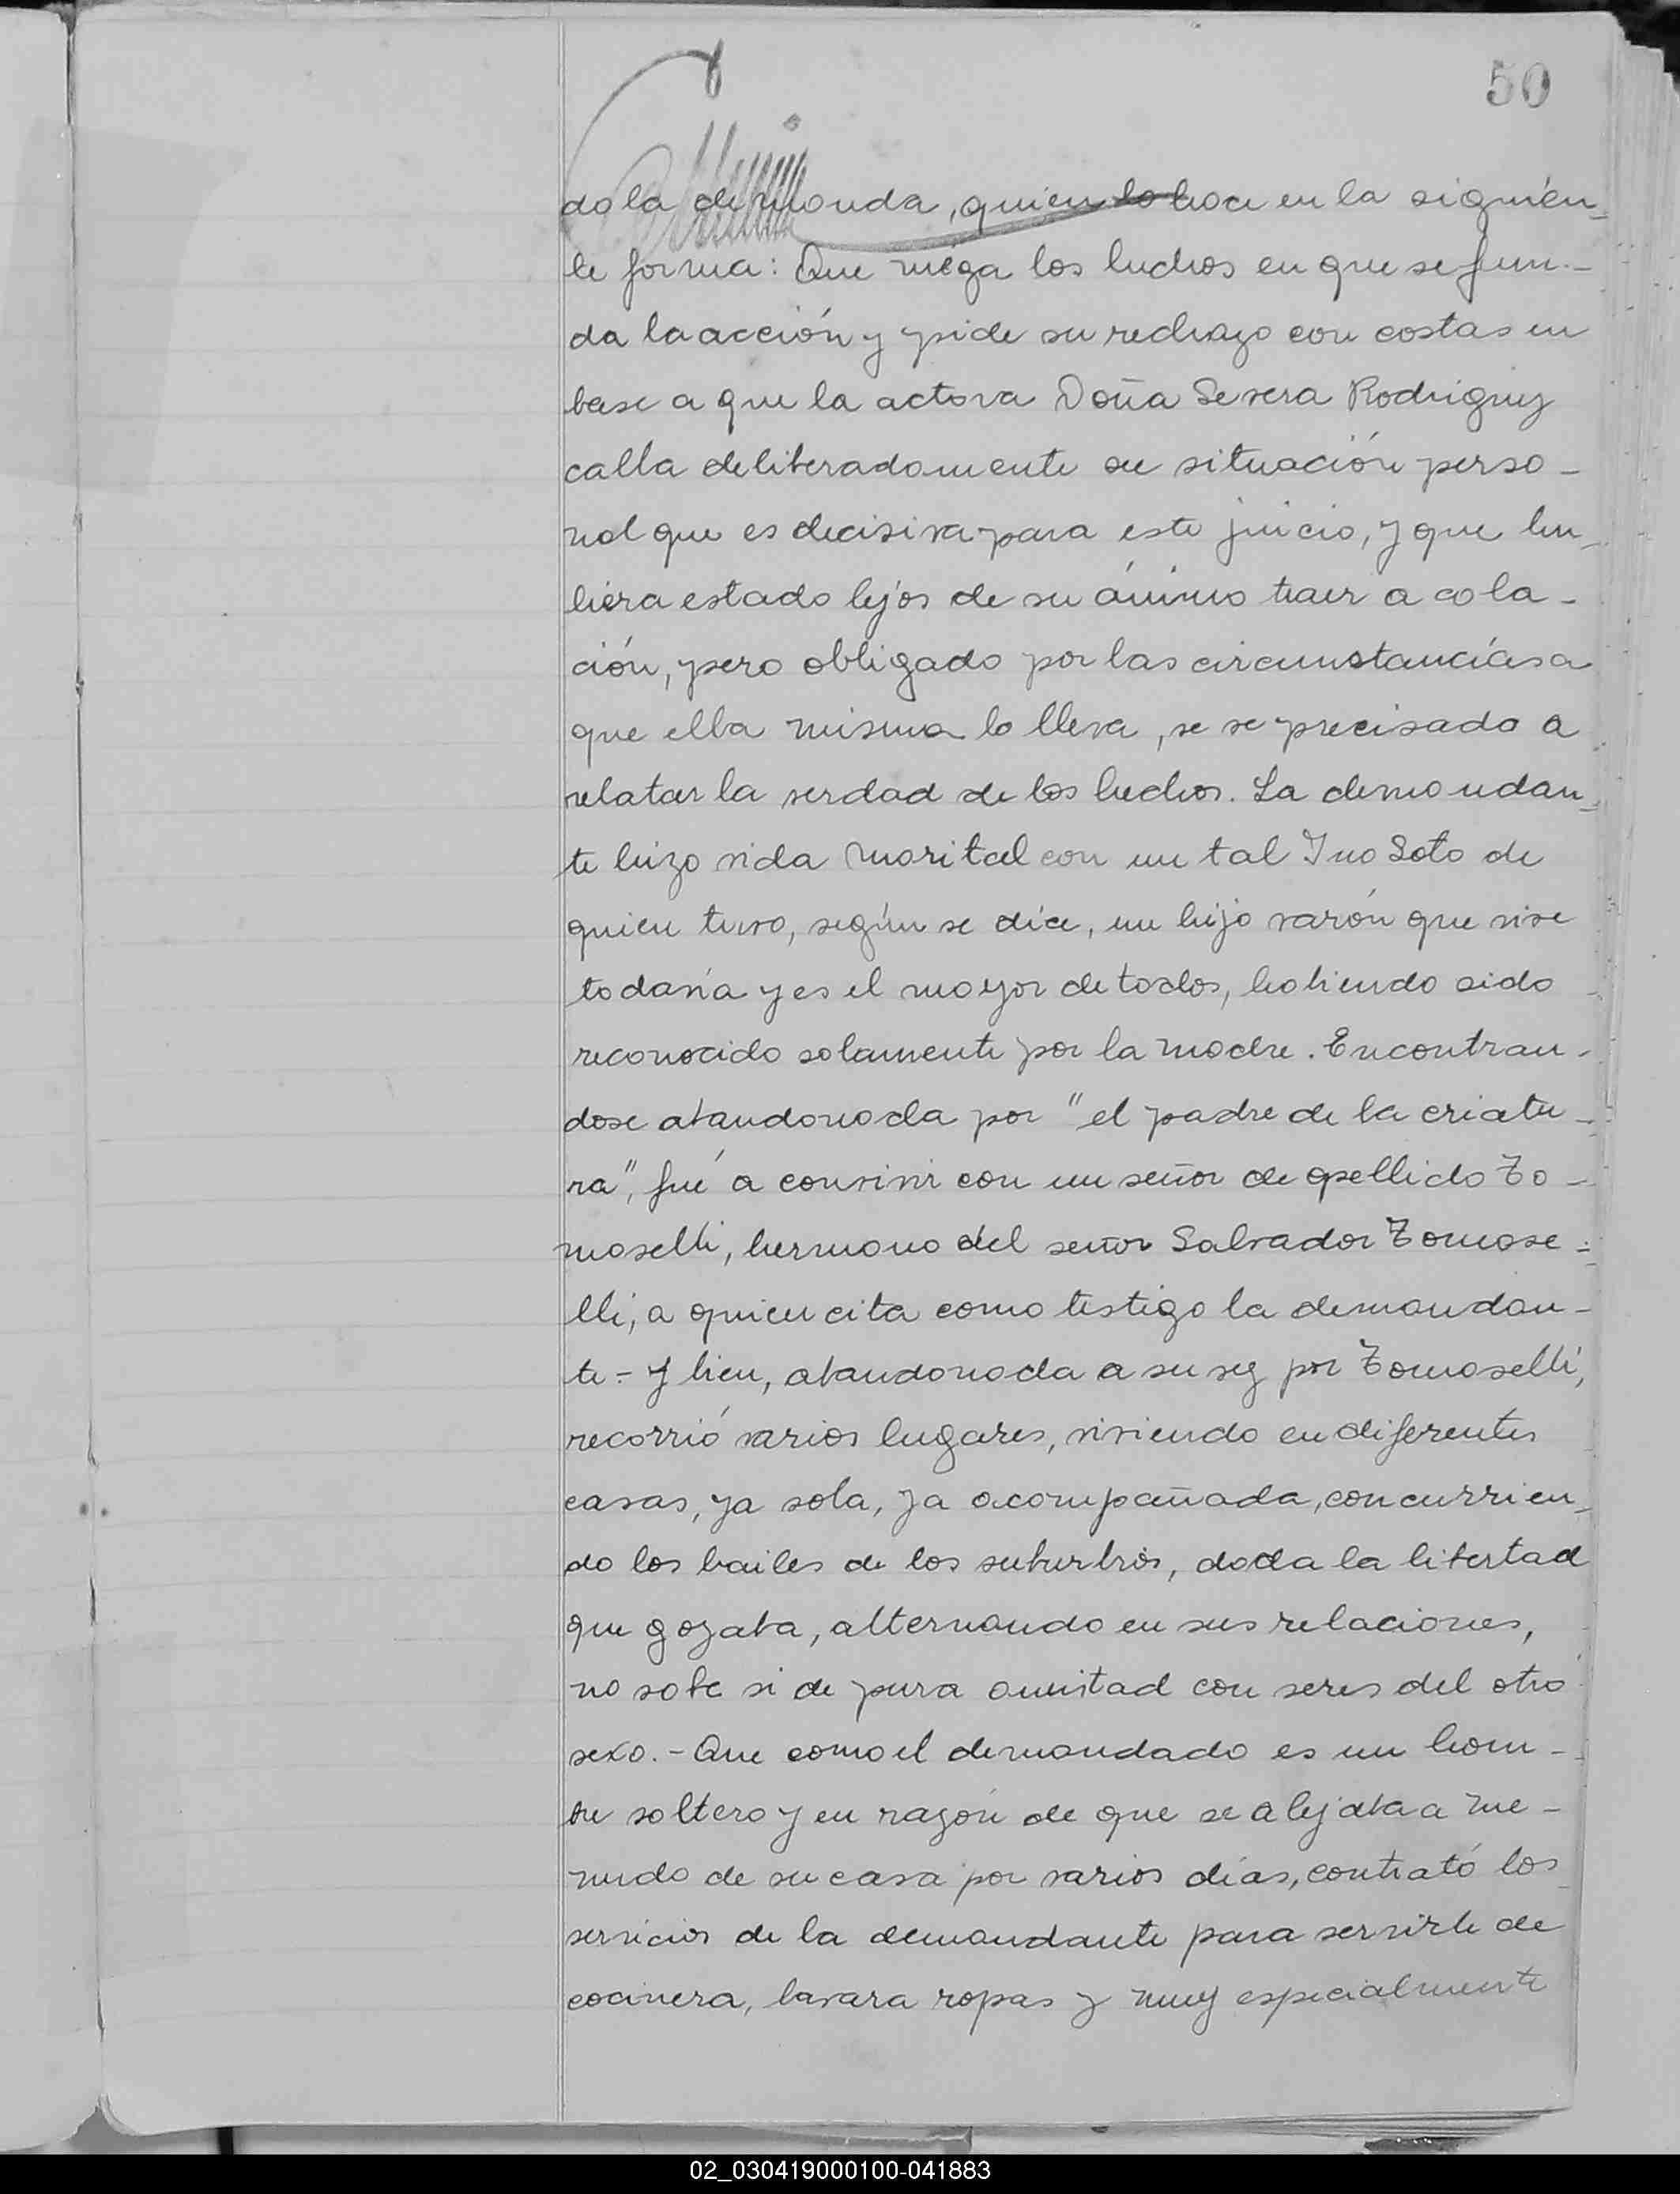 50
do la demanda, quien lo hace en la siguien-
te forma: Que niega los hechos en que se fun-
da la acción y pide su rechazo con costas en
base a que la actora Doña Severa Rodriguez
calla deliberadamente su situación perso-
nal que es decisiva para este juicio, y que hu-
biera estado lejos de su ánimo traer a cola-
ción, pero obligado por las circunstancias a
que ella misma lo lleva, se ve precisado a
relatar la verdad de los hechos. La demandan-
te hizo vida marital con un tal Ino Soto de
quien tuvo, según se dice, un hijo varón que vive
todavía y es el mayor de todos, habiendo sido
reconocido solamente por la madre. Encontran-
dose abandonada por "el padre de la criatu-
ra", fué a convivir con un señor de apellido To-
maselli, hermano del señor Salvador Tomase-
lli, a quien cita como testigo la demandan-
te.- Y bien, abandonada a su vez por Tomaselli,
recorrió varios lugares, viviendo en diferentes
casas, ya sola, ya acompañada, concurrien-
do los bailes de los suburbios, dada la libertad
que gozaba, alternando en sus relaciones,
no sabe si de pura amistad con seres del otro
sexo.- Que como el demandado es un hom-
bre soltero y en razón de que se alejaba a me-
nudo de su casa por varios días, contrató los
servicios de la demandante para servirle de
cocinera, lavara ropas y muy especialmente
02_030419000100-041883